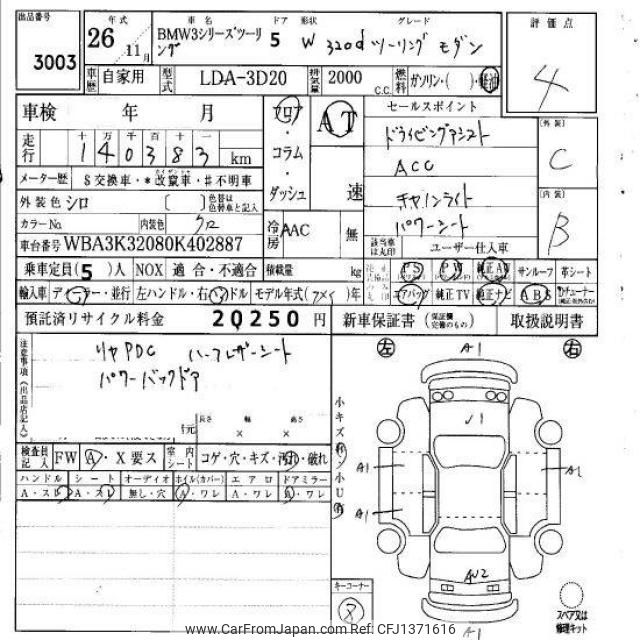 出品番号
3003
年式
26年
11月
車名
BMW3シリーズツーリング
ドア 形状
5 W
グレード
320d ツーリング モダン
評価点
4
車歴
自家用
型式
LDA-3D20
排気量
2000 C.C.
燃料
ガソリン・( )・軽油
車検 年 月
走行
十 万 千 百 十 一
140383 km
メーター歴 S 交換車・*改竄車・#不明車
外装色 シロ
[ ] 色替は色替車と記入
カラーNo. 内装色 クロ
車台番号 WBA3K32080K402887
コラム・ダッシュ
AT
速
冷房 AAC
無
セールスポイント
ドライビングアシスト
ACC
キセノンライト
パワーシート
該当車は丸印 ユーザー仕入車
外装
C
内装
B
乗車定員(5)人 NOX 適合・不適合 積載量 kg
PS PW 純正AW サンルーフ 革シート
輸入車 ディーラー・並行 左ハンドル・右ハンドル モデル年式( )年
エアバック 純正TV 純正ナビ ABS
預託済リサイクル料金 20250 円
新車保証書 (保証欄完備のもの) 取扱説明書
注意事項(出品店記入)
リヤPDC ハーフレザーシート
パワーバックドア
長さ 幅 高さ
× ×
左
右
A1
√1
A1
A1
A1
AU2
A1
小キズ
小U
検査員記入 FW A・X要ス 室内シート コゲ・穴・キズ・汚れ・破れ
ハンドル シート オーディオ ホイル(カバー) エアロ ドアミラー
A・スレ A・スレ 無し・穴 A・ワレ A・ワレ A・ワレ
キーコーナー
スペア又は修理キット
www.CarFromJapan.com Ref: CFJ1371616